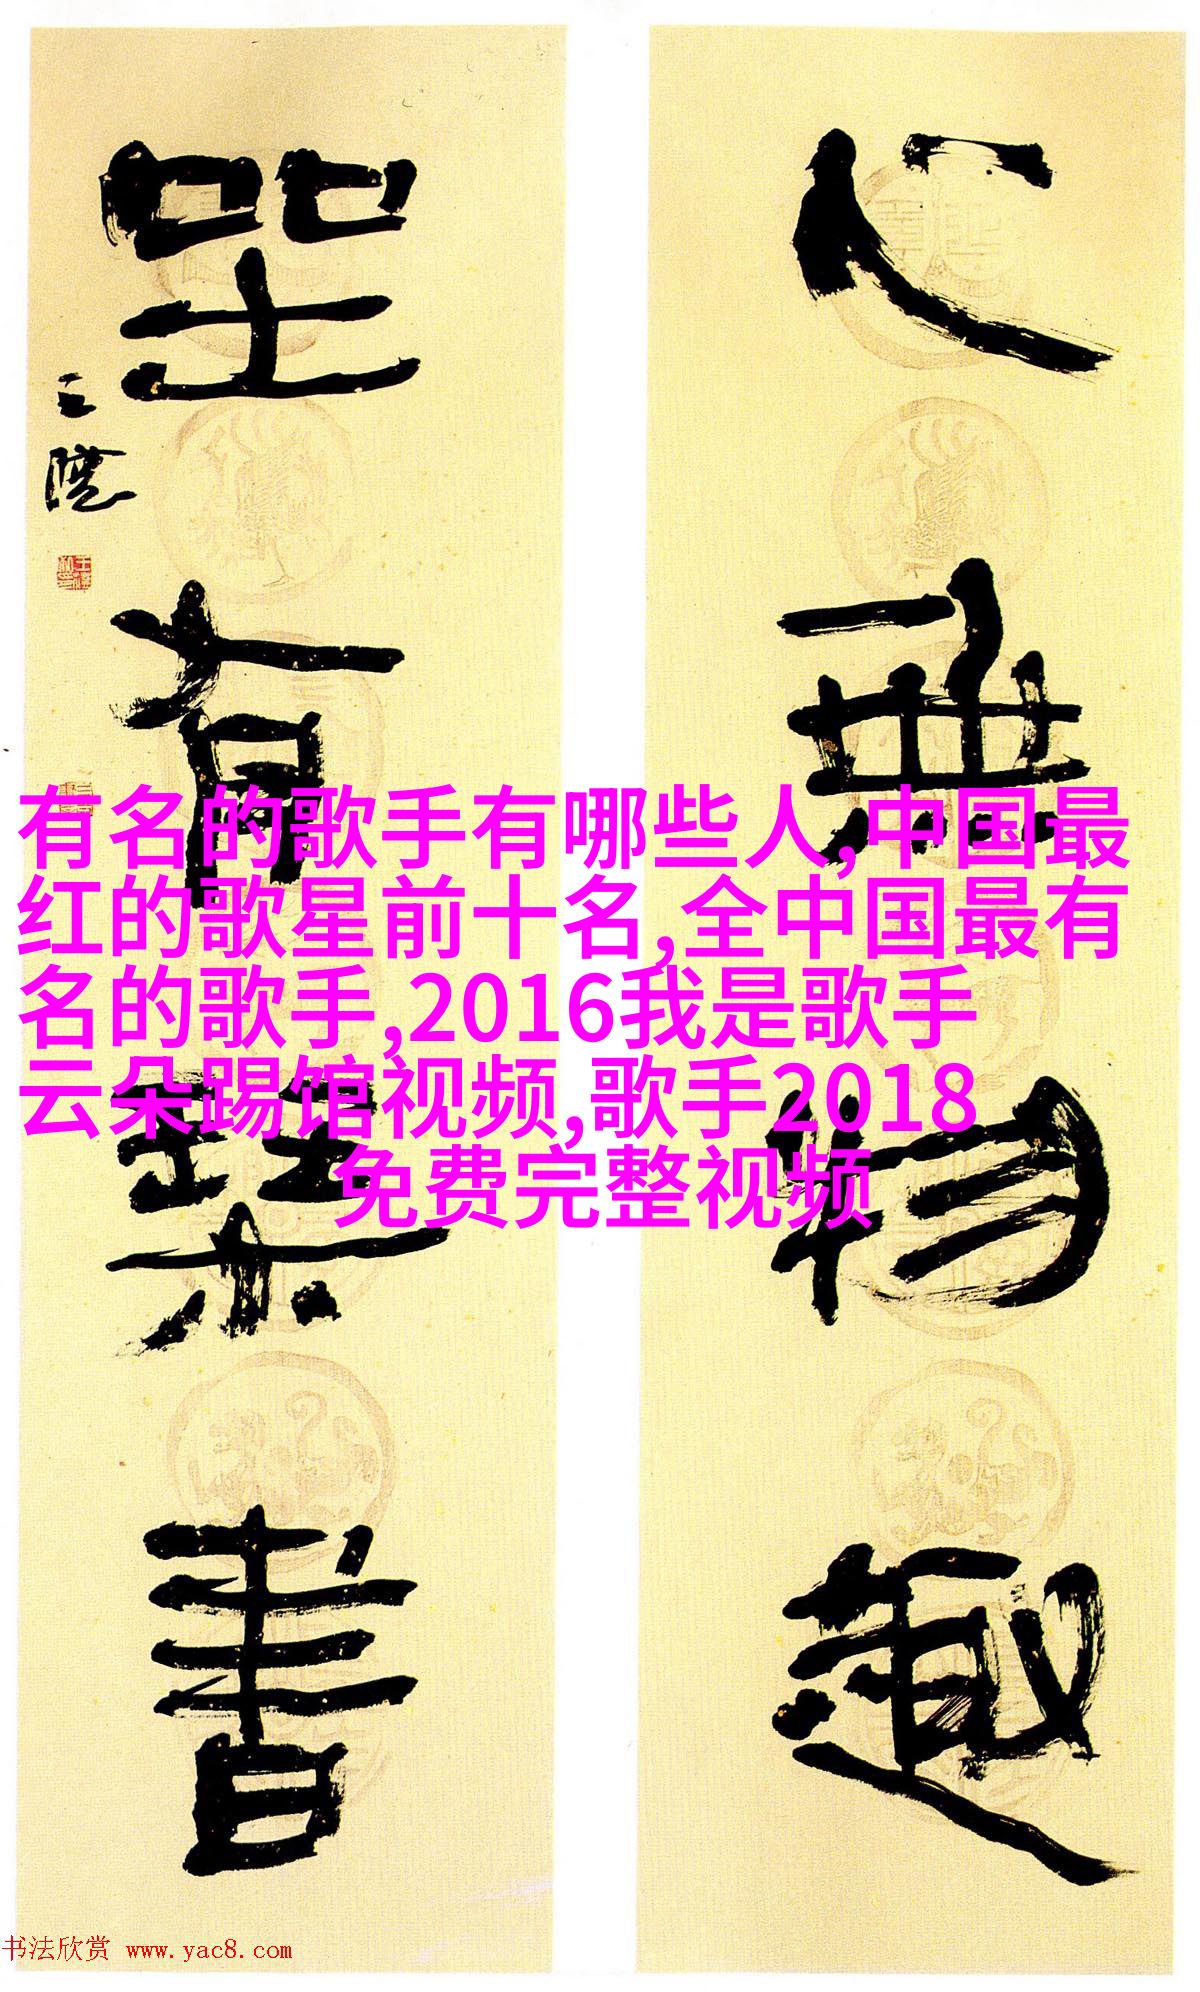 心無物趣
坐有琴書
三院
有名的歌手有哪些人,中国最
红的歌星前十名,全中国最有
名的歌手,2016我是歌手
云朵踢馆视频,歌手2018
免费完整视频
书法欣赏 www.yac8.com